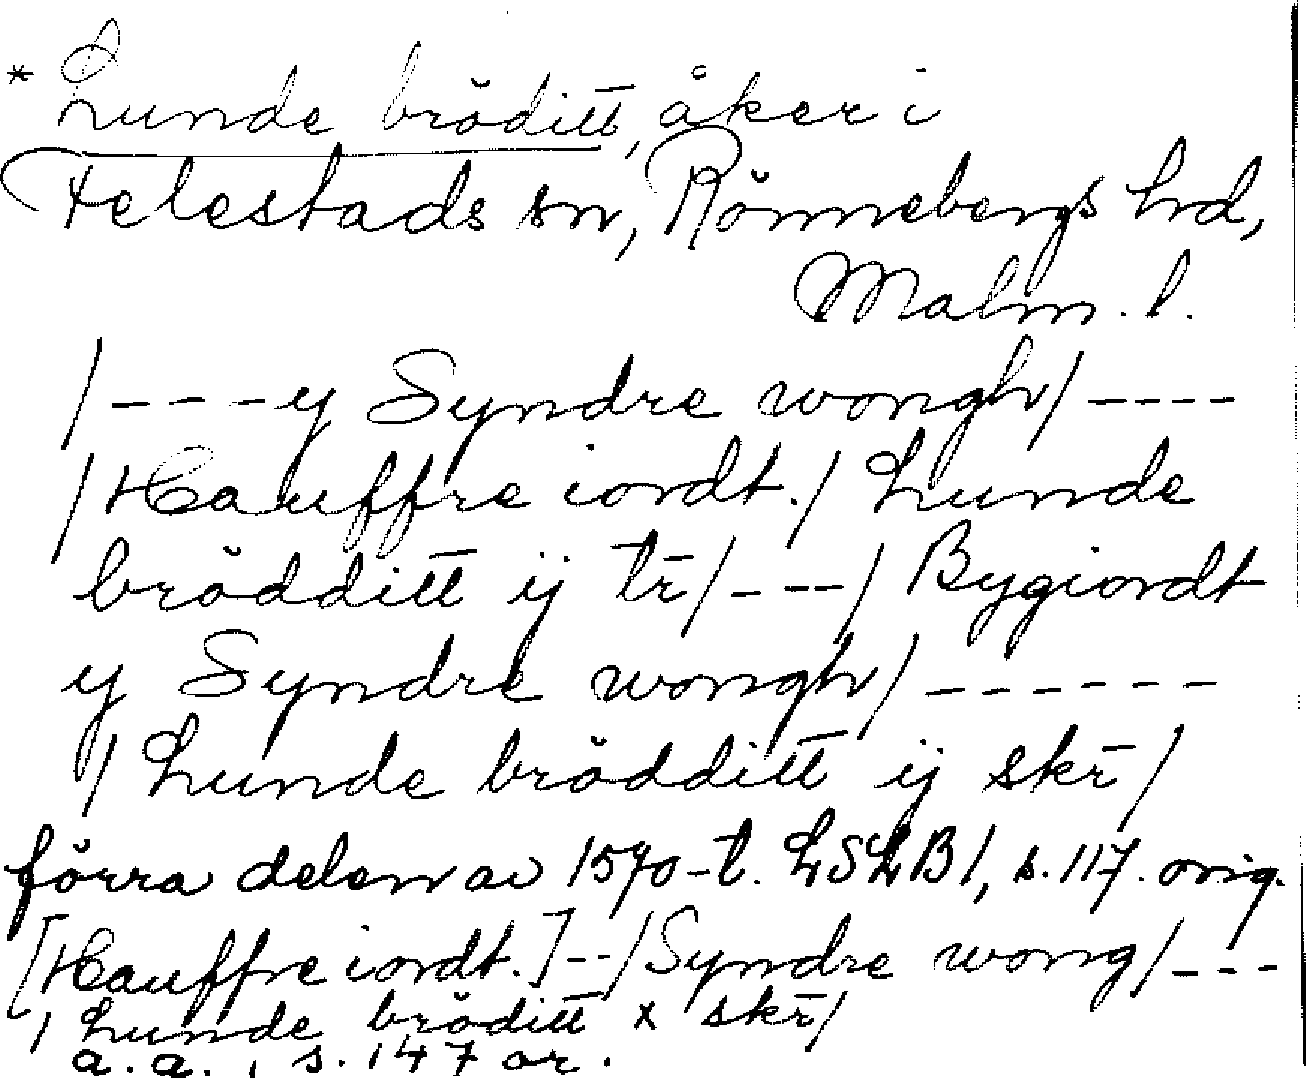 * Lunde bröditt, åker i
Felestads sn, Rönnebergs hrd,
Malm. l.
/----y Syndre wongh/----
/Hauffre iordt./ Lunde
brödditt ij tr̄/---/ Bygiordt
y Syndre wongh/------
/ Lunde brödditt ij skr̄/
förra delen av 1570-t. LSLB1, s. 117. orig.
[Hauffre iordt.]--/Syndre wong/---
/ Lunde bröditt x skr̄/
a.a., s. 147 or.